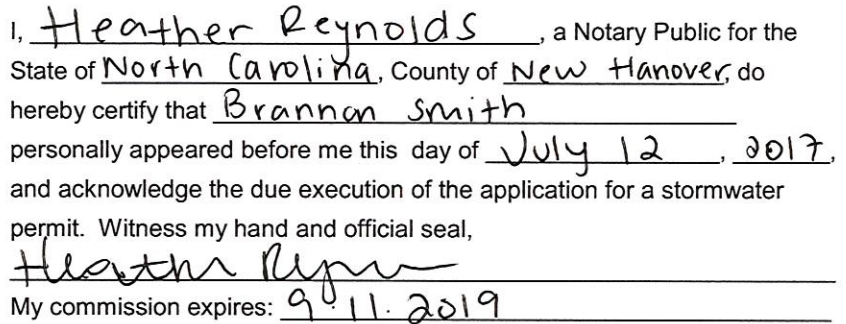 I, Heather Reynolds, a Notary Public for the
State of North Carolina, County of New Hanover, do
hereby certify that Brannon Smith
personally appeared before me this day of July 12, 2017,
and acknowledge the due execution of the application for a stormwater
permit. Witness my hand and official seal,
Heather Reynolds
My commission expires: 9.11.2019